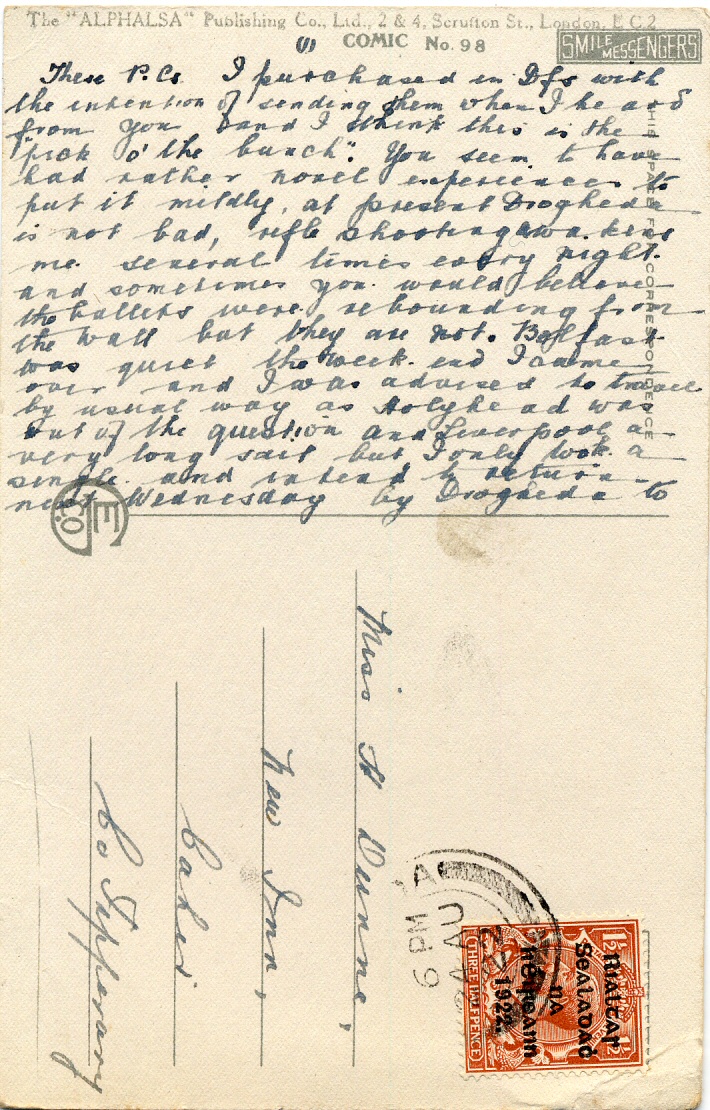 The "ALPHALSA" Publishing Co., Ltd., 2 & 4, Scrutton St., London, E.C.2
(1) COMIC No. 98
SMILE MESSENGERS
These P.Cs I purchased in Dfs with
the intention of sending them when I heard
from you and I think this is the
"pick o' the bunch". You seem to have
had rather novel experiences to
put it mildly, at present Drogheda
is not bad, rifle shooting awakens
me several times every night
and sometimes you would believe
the bullets were rebounding from
the wall but they are not. Belfast
was quiet the week end I came
over and I was advised to travel
by usual way as Holyhead was
out of the question and Liverpool a
very long sail but I only took a
single and intend to return
next Wednesday by Drogheda to
THIS SPACE FOR CORRESPONDENCE
Miss A Dunne,
New Inn,
Caher
Co Tipperary
6 PM
AU
22
Rialtar
Sealadaċ
na
hÉireann
1922
1½ 1½
THREE HALF PENCE